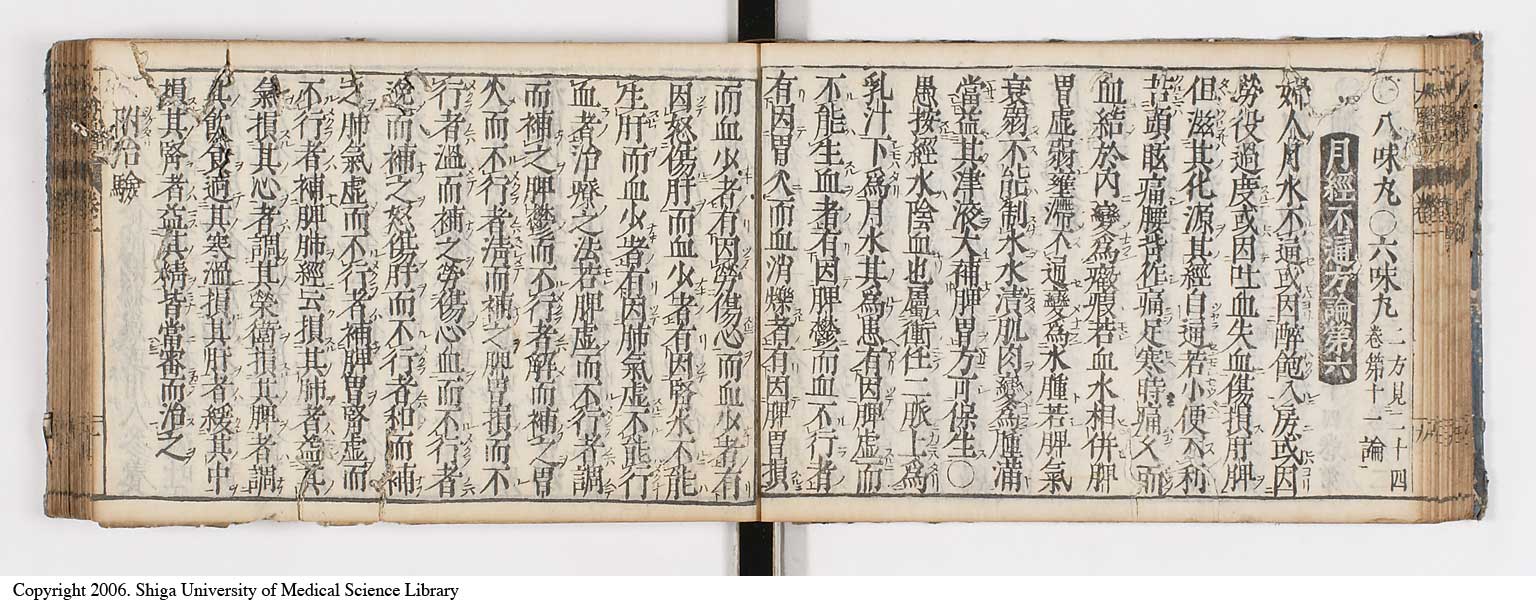 〇八味丸〇六味丸二方見二十四卷第十二論
月經不通方論第六
婦人月水不通或因醉飽入房或因
勞役過度或因吐血失血傷損肝脾
但滋其化源其經自通若小便不利
苦頭眩痛腰背作痛足寒時痛久而
血結於內變爲癥瘕若血水相併脾
胃虛弱壅滯不通變爲水腫若脾氣
衰弱不能制水水漬肌肉變爲腫滿
當益其津液大補脾胃方可保生〇
愚按經水陰血也屬衝任二脈上爲
乳汁下爲月水其爲患有因脾虛而
不能生血者有因脾鬱而血不行者
有因胃火而血消爍者有因脾胃損
而血少者有因勞傷心而血少者有
因怒傷肝而血少者有因腎水不能
生肝而血少者有因肺氣虛不能行
血者治療之法若脾虛而不行者調
而補之脾鬱而不行者解而補之胃
火而不行者淸而補之脾胃損而不
行者溫而補之勞傷心血而不行者
逸而補之怒傷肝而不行者和而補
之肺氣虛而不行者補脾胃腎虛而
不行者補脾肺經云損其肺者益其
氣損其心者調其榮衛損其脾者調
其飮食適其寒溫損其肝者緩其中
損其腎者益其精皆當審而治之
附治驗
Copyright 2006. Shiga University of Medical Science Library